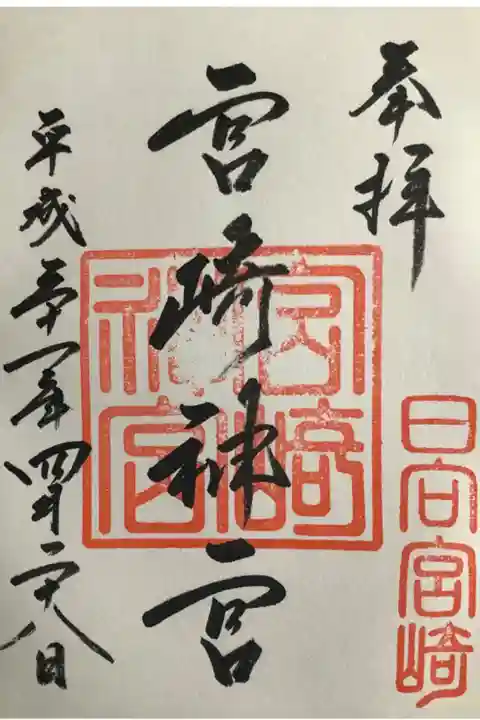 奉拝
日向宮崎
宮崎神宮
宮崎神宮
平成三十一年四月二十八日